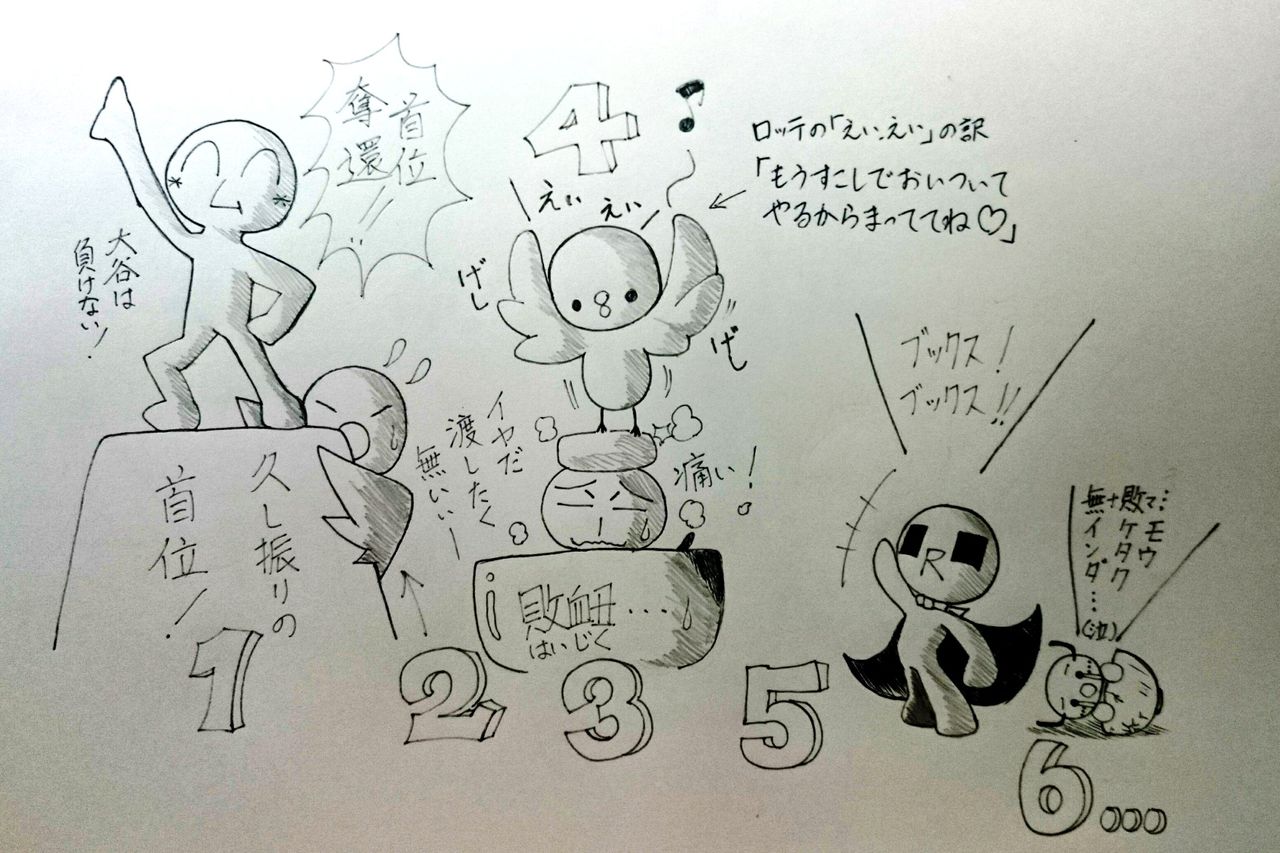 首位
奪還!!
大谷は
負けない!
久し振りの
首位!
1
4
♪
えい えい
げし
げし
ロッテの「えいえい」の訳
「もうすこしでおいついて
やるからまっててね♡」
イヤだ
渡したく
無いぃー
痛い!
敗
はいじく
2
3
ブックス!
ブックス!!
5
R
モウ
敗ケタク
無インダ…
(泣)
6...